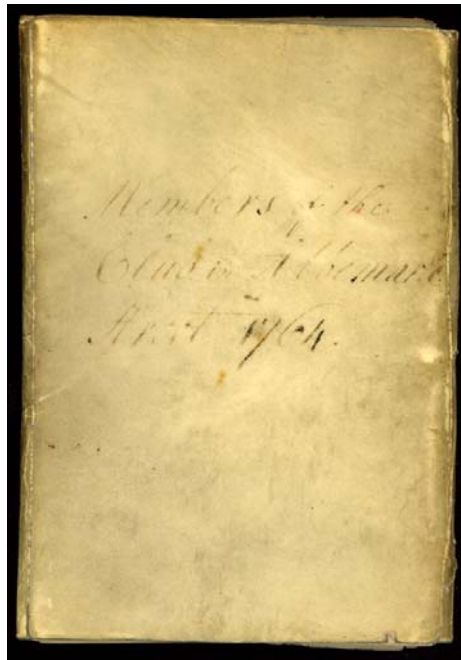 Members of the
Club in Albemarle
Street 1764.